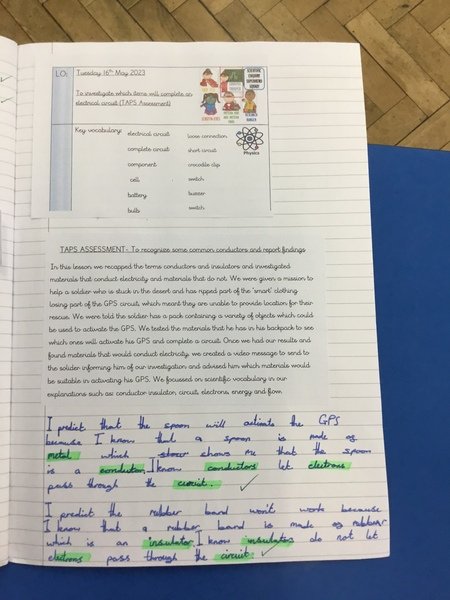 LO: Tuesday 16th May 2023
To investigate which items will complete an
electrical circuit (TAPS Assessment)
Key vocabulary: electrical circuit loose connection
complete circuit short circuit
component crocodile clip
cell switch
battery buzzer
bulb switch
Physics
TAPS ASSESSMENT:- To recognise some common conductors and report findings
In this lesson we recapped the terms conductors and insulators and investigated
materials that conduct electricity and materials that do not. We were given a mission to
help a soldier who is stuck in the desert and has ripped part of the 'smart' clothing
losing part of the GPS circuit, which meant they are unable to provide location for their
rescue. We were told the soldier has a pack containing a variety of objects which could
be used to activate the GPS. We tested the materials that he has in his backpack to see
which ones will activate his GPS and complete a circuit. Once we had our results and
found materials that would conduct electricity, we created a video message to send to
the soldier informing him of our investigation and advised him which materials would
be suitable in activating his GPS. We focussed on scientific vocabulary in our
explanations such as: conductor insulator, circuit, electrons, energy and flow.
I predict that the spoon will activate the GPS
because I know that a spoon is made of
metal which shows me that the spoon
is a conductor. I know conductors let electrons
pass through the circuit.
I predict the rubber band won't work because
I know that a rubber band is made of rubber
which is an insulator. I know insulates do not let
electrons pass through the circuit.